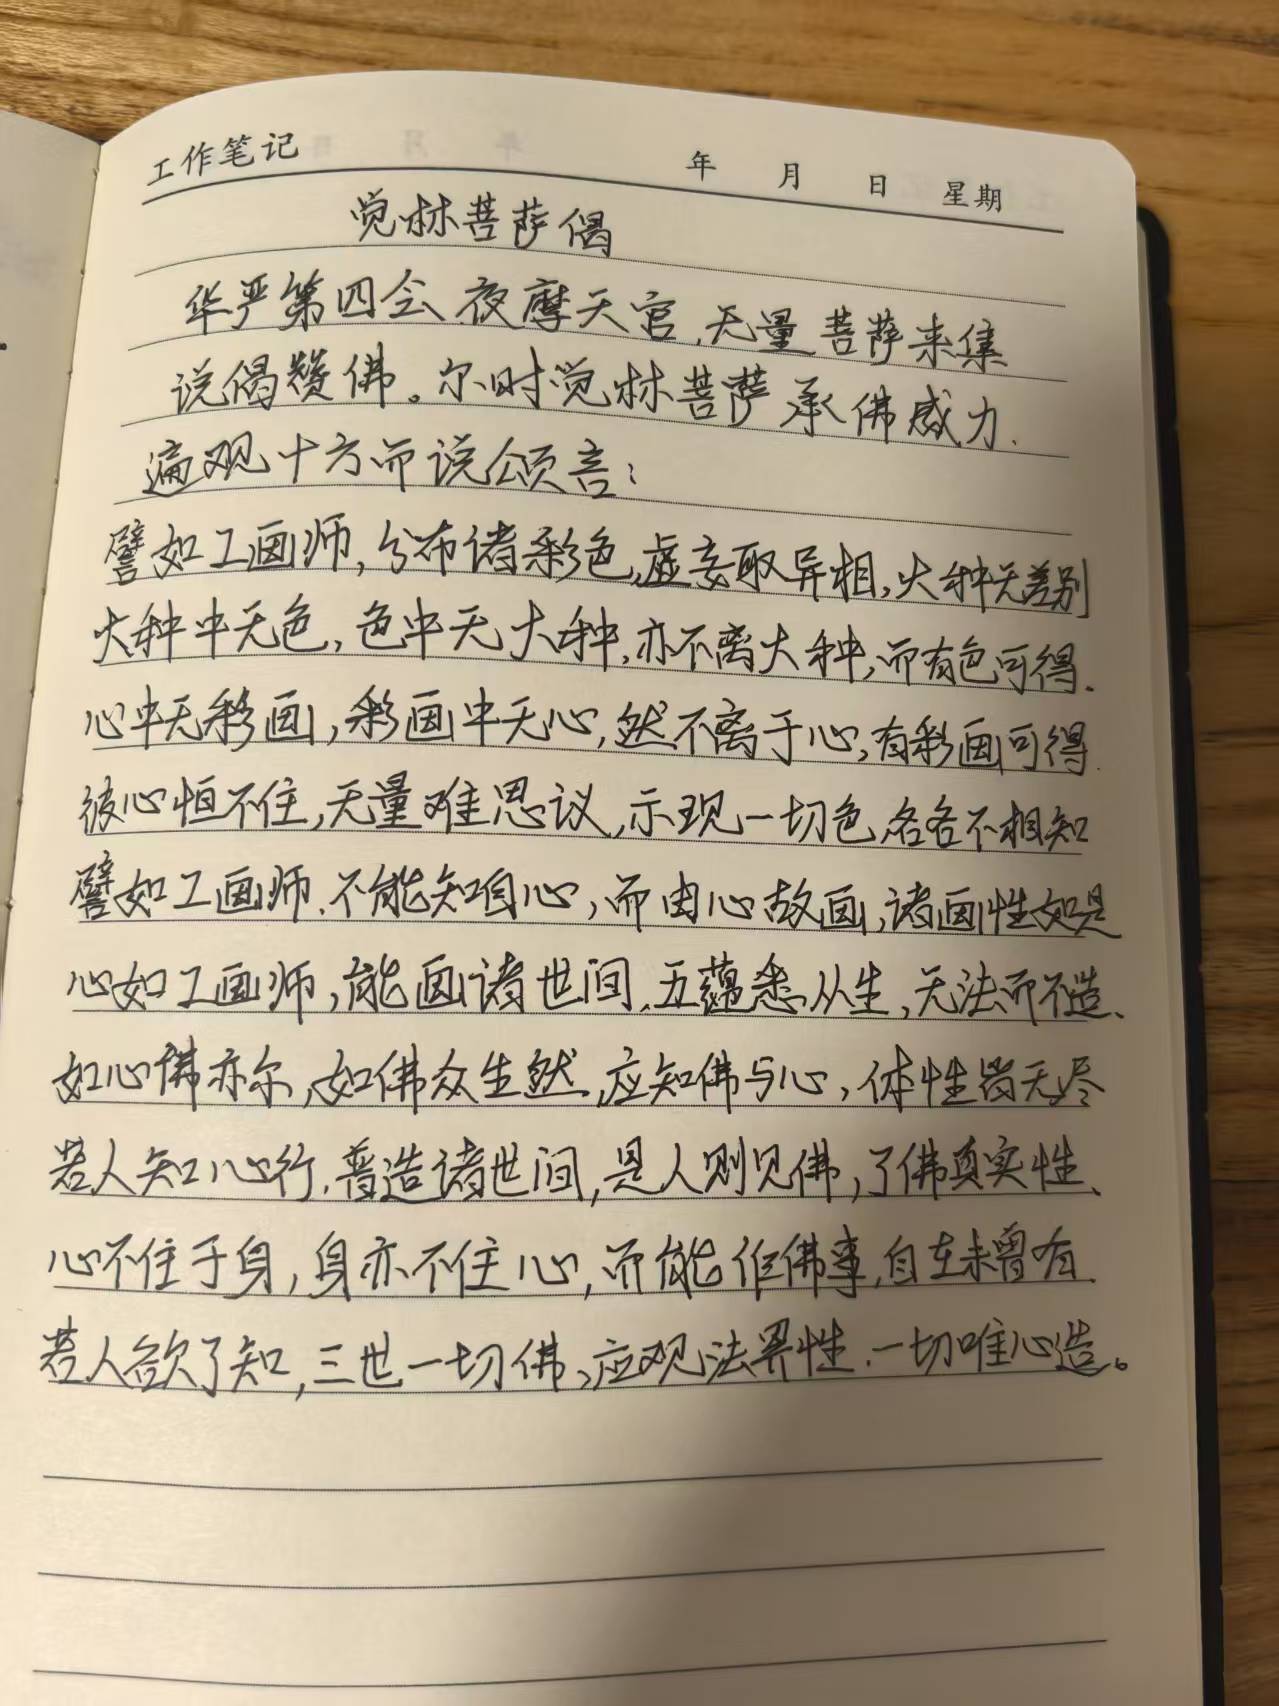 工作笔记 年 月 日 星期
觉林菩萨偈
华严第四会、夜摩天宫，无量菩萨来集
说偈赞佛。尔时觉林菩萨承佛威力、
遍观十方而说颂言：
譬如工画师，分布诸彩色，虚妄取异相，大种无差别
大种中无色，色中无大种，亦不离大种，而有色可得、
心中无彩画，彩画中无心，然不离于心，有彩画可得、
彼心恒不住，无量难思议，示现一切色，各各不相知
譬如工画师、不能知自心，而由心故画，诸画性如是
心如工画师，能画诸世间、五蕴悉从生，无法而不造、
如心佛亦尔，如佛众生然，应知佛与心，体性皆无尽
若人知心行、普造诸世间，是人则见佛，了佛真实性、
心不住于身，身亦不住心，而能作佛事，自在未曾有、
若人欲了知，三世一切佛，应观法界性、一切唯心造。